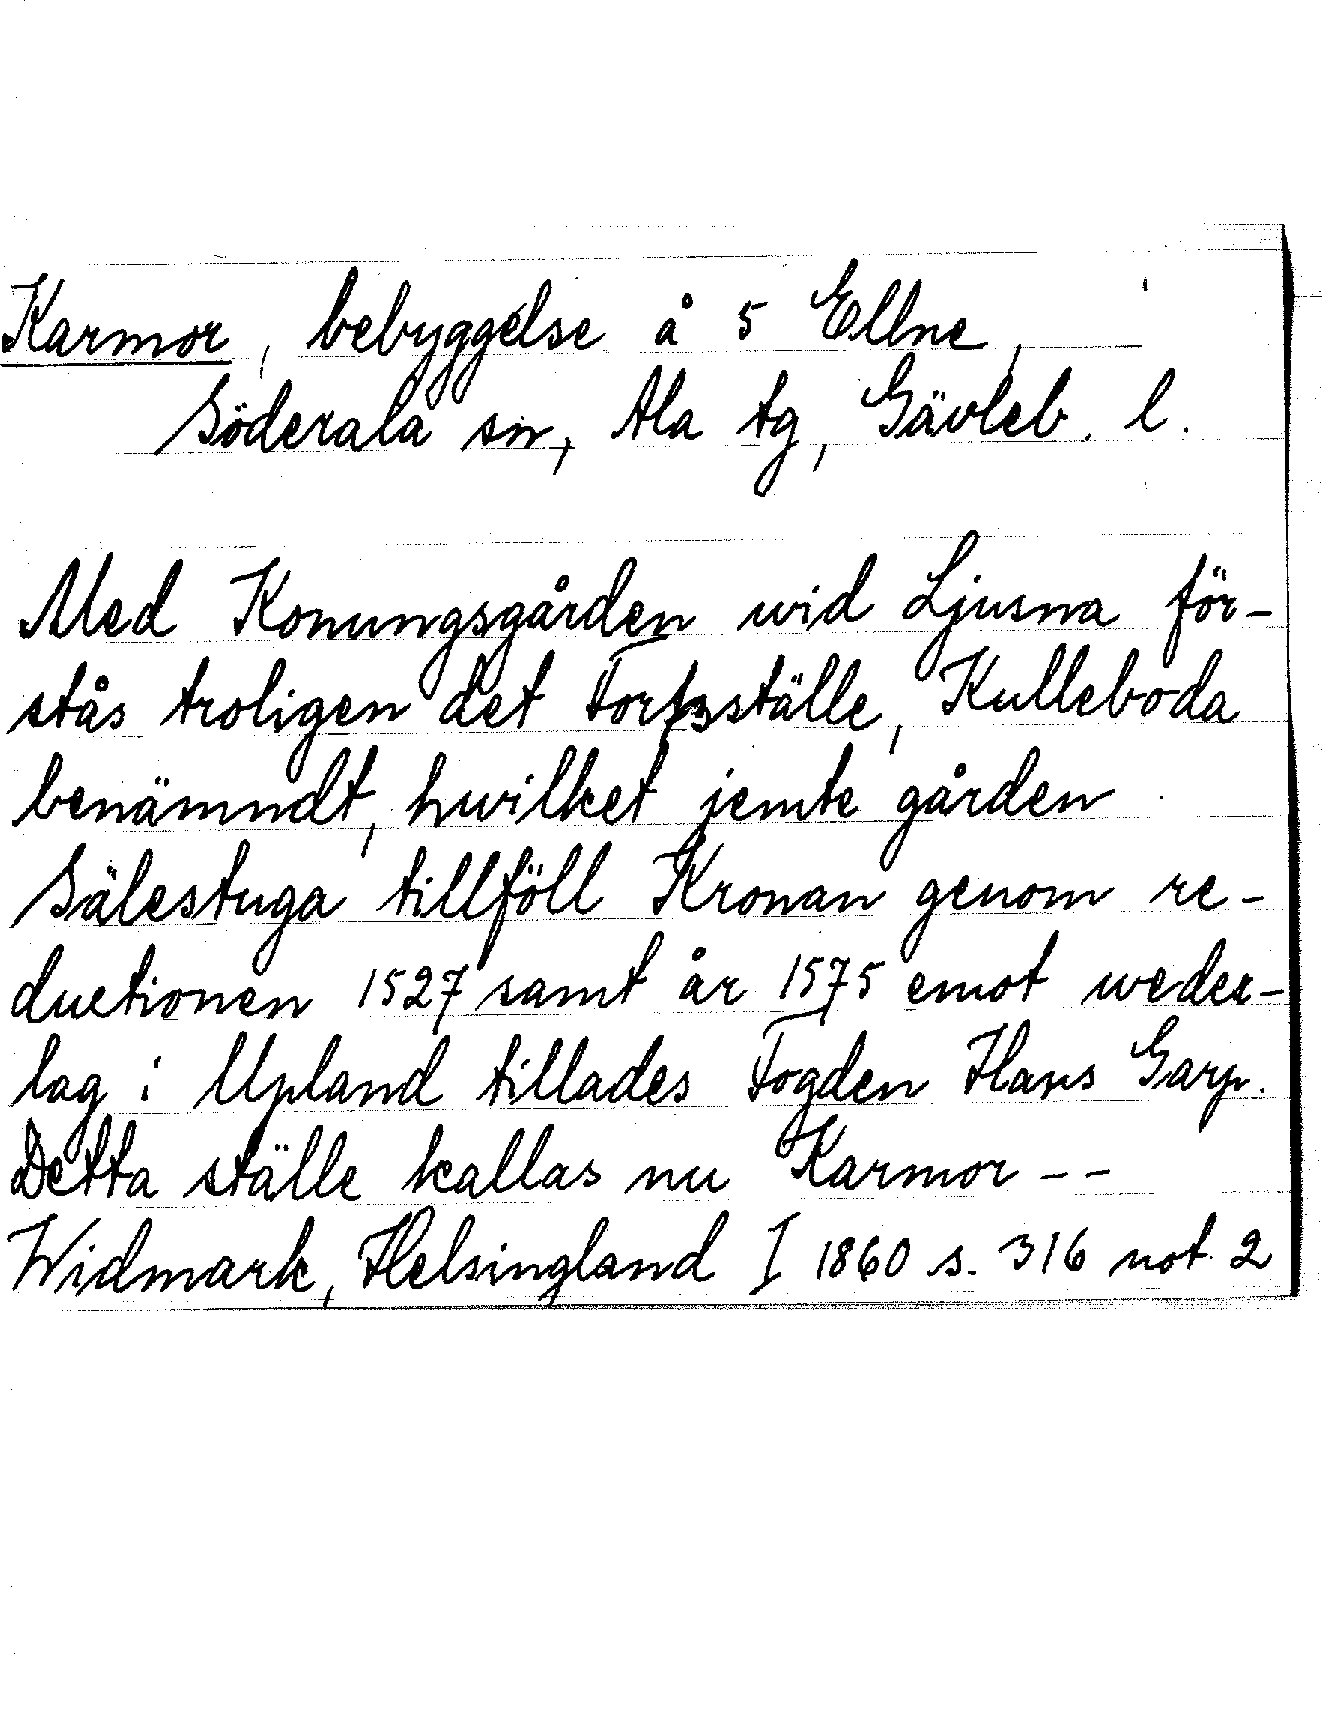 Karmor, bebyggelse å 5 Ellne,
Söderala sn, Ala tg, Gävleb. l.
Med Konungsgården wid Ljusna för-
stås troligen det Torpsställe, Kulleboda
benämndt, hwilket jemte gården
Sälestuga tillföll Kronan genom re-
ductionen 1527 samt år 1575 emot weder-
lag i Upland tillades Fogden Hans Garp.
Detta ställe kallas nu Karmor --
Widmark, Helsingland I 1860 s. 316 not 2